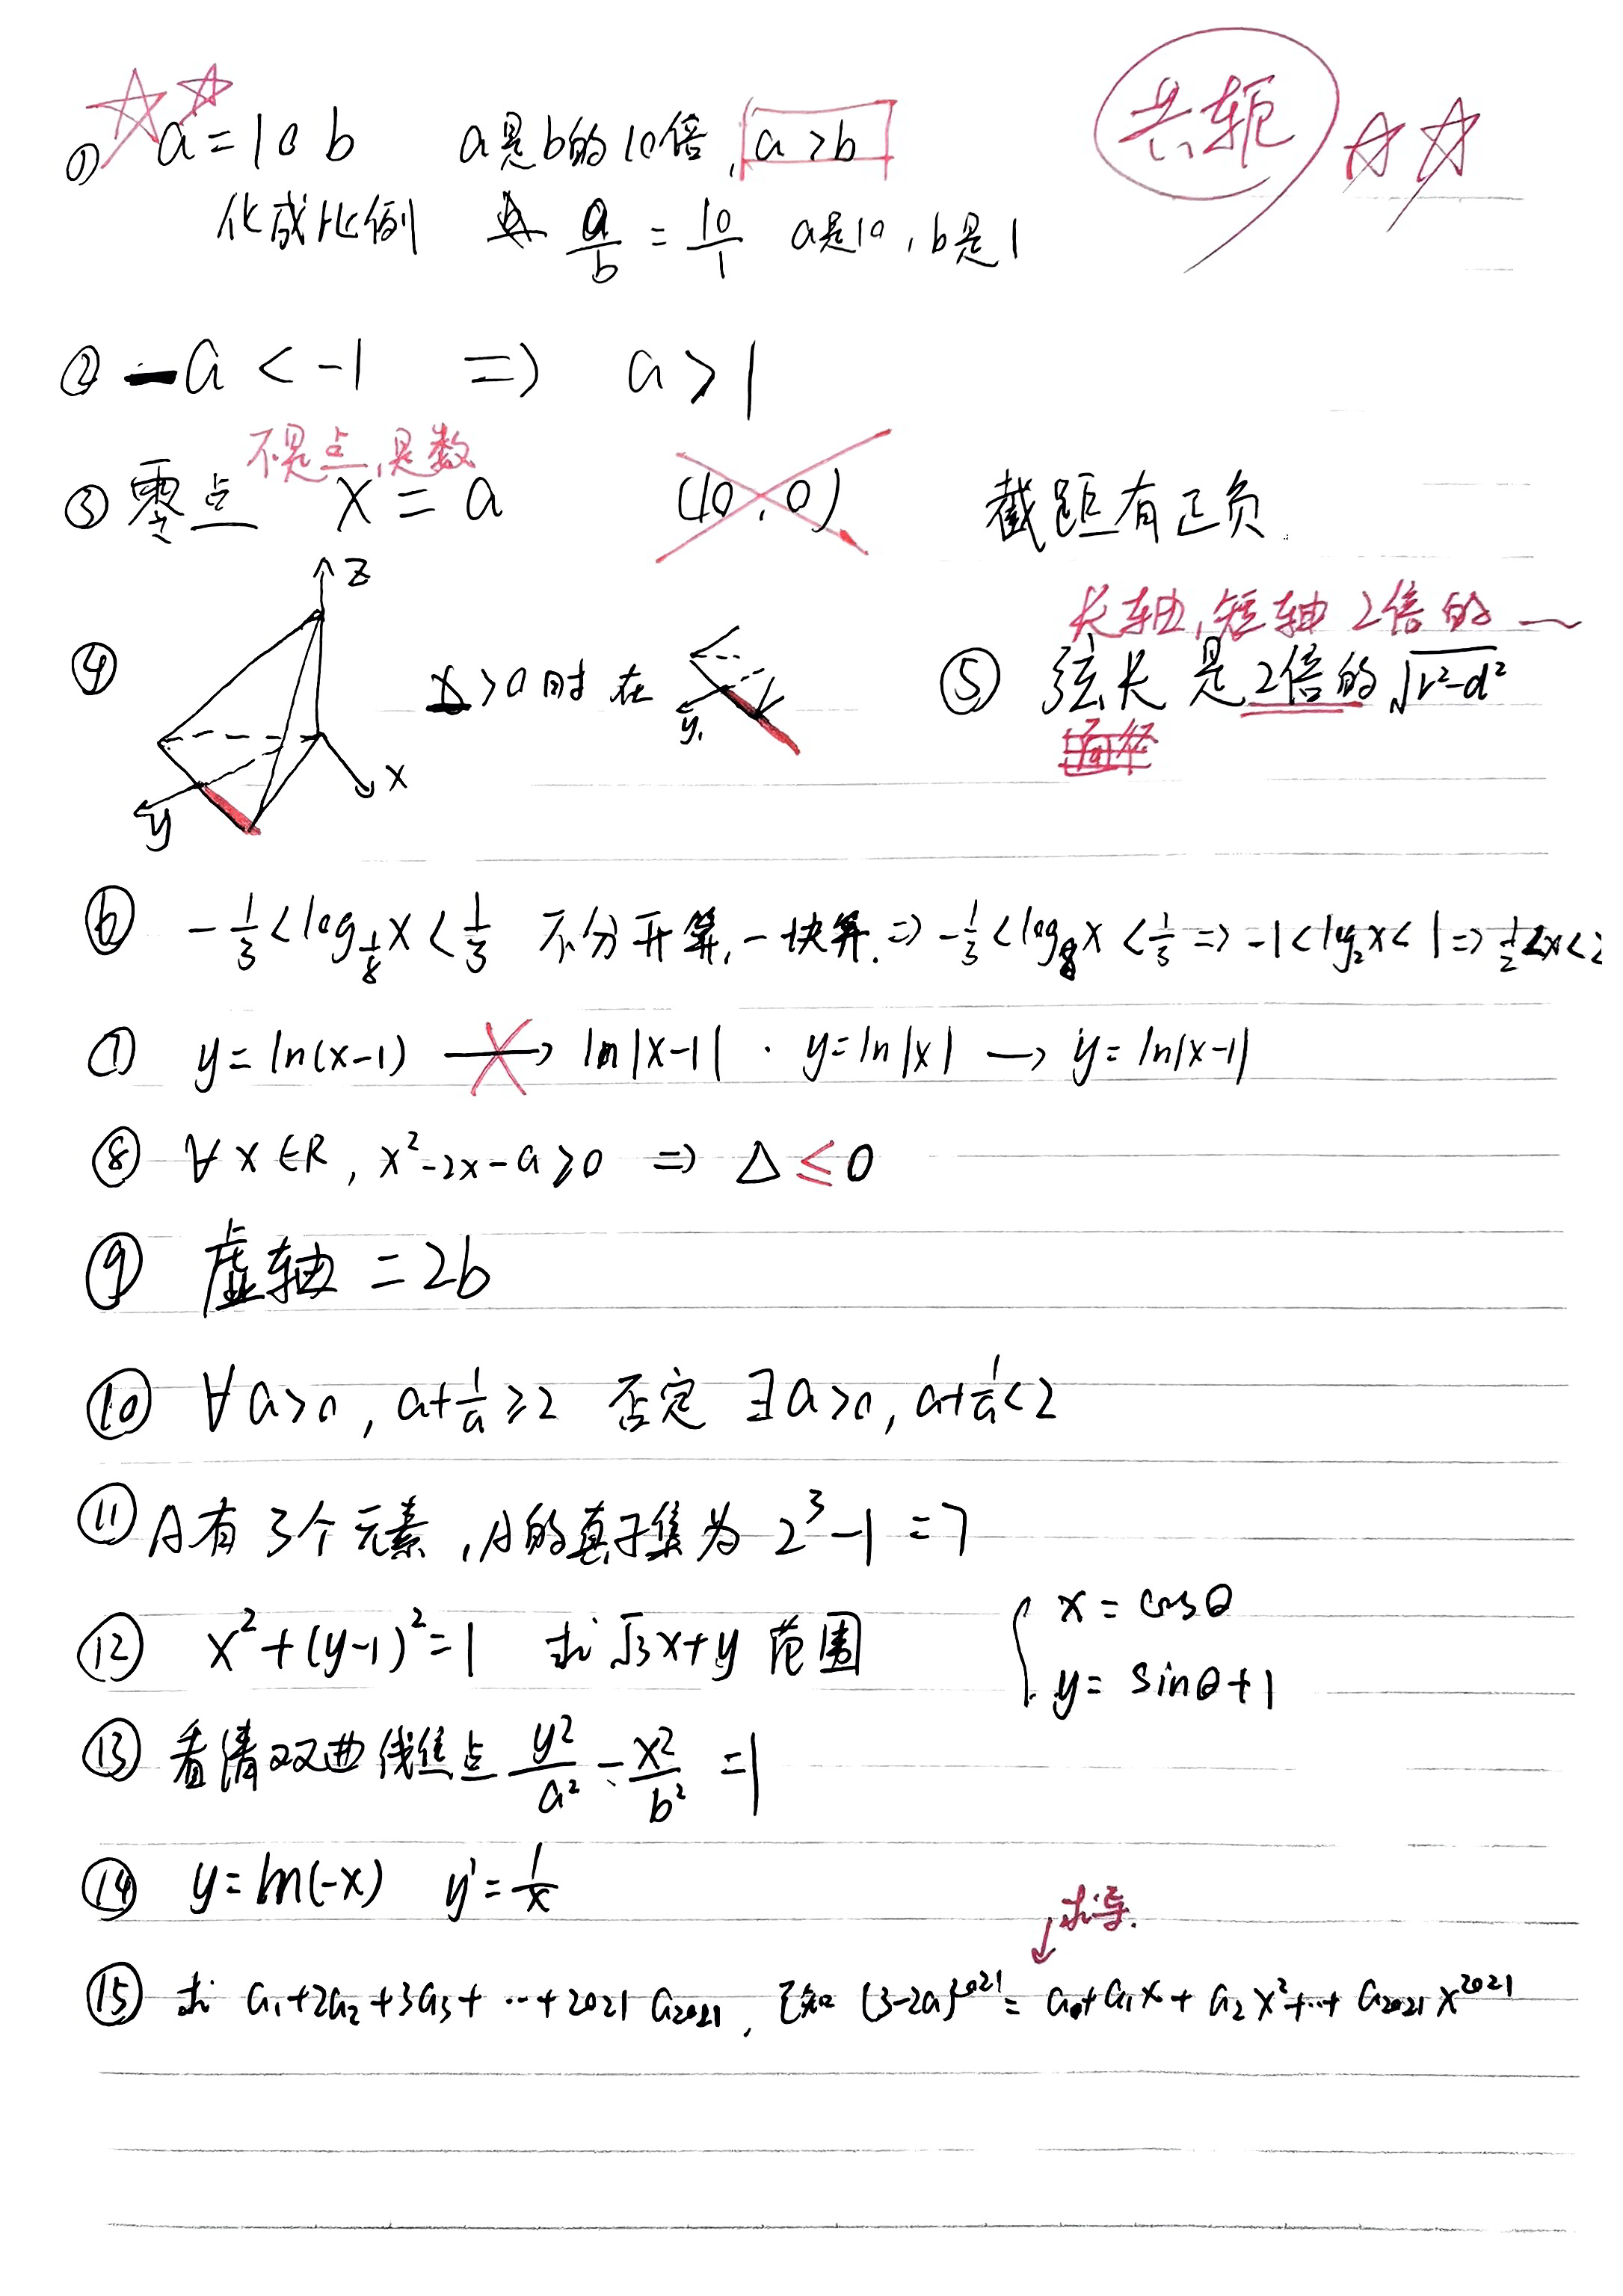 共轭
① a=10b a是b的10倍, a>b
化成比例 a/b = 10/1 a是10, b是1
② -a < -1 => a > 1
不是点,是数
③ 零点 x = a (10,0) 截距有正负.
z
长轴,短轴 2倍的
④ x>0时 在 ⑤ 弦长 是2倍的 √(r²-d²)
y
x
y
⑥ -1/3 < log_{1/8} x < 1/3 不分开算,一块算. => -1/3 < log_8 x < 1/3 => -1 < log_2 x < 1 => 1/2 < x < 2
⑦ y = ln(x-1) → ln|x-1| · y = ln|x| → y = ln|x-1|
⑧ ∀ x ∈ R, x²-2x-a ≥ 0 => △ ≤ 0
⑨ 虚轴 = 2b
⑩ ∀ a>0, a+1/a ≥ 2 否定 ∃ a>0, a+1/a < 2
⑪ A有3个元素, A的真子集为 2³-1 = 7
⑫ x²+(y-1)²=1 求 √3x+y 范围 { x = cosθ
y = sinθ+1
⑬ 看清双曲线焦点 y²/a² - x²/b² = 1
⑭ y = ln(-x) y' = 1/x
求导.
⑮ 求 a₁+2a₂+3a₃+…+2021 a₂₀₂₁, 已知 (3-2a)²⁰²¹ = a₀+a₁x+a₂x²+…+a₂₀₂₁x²⁰²¹